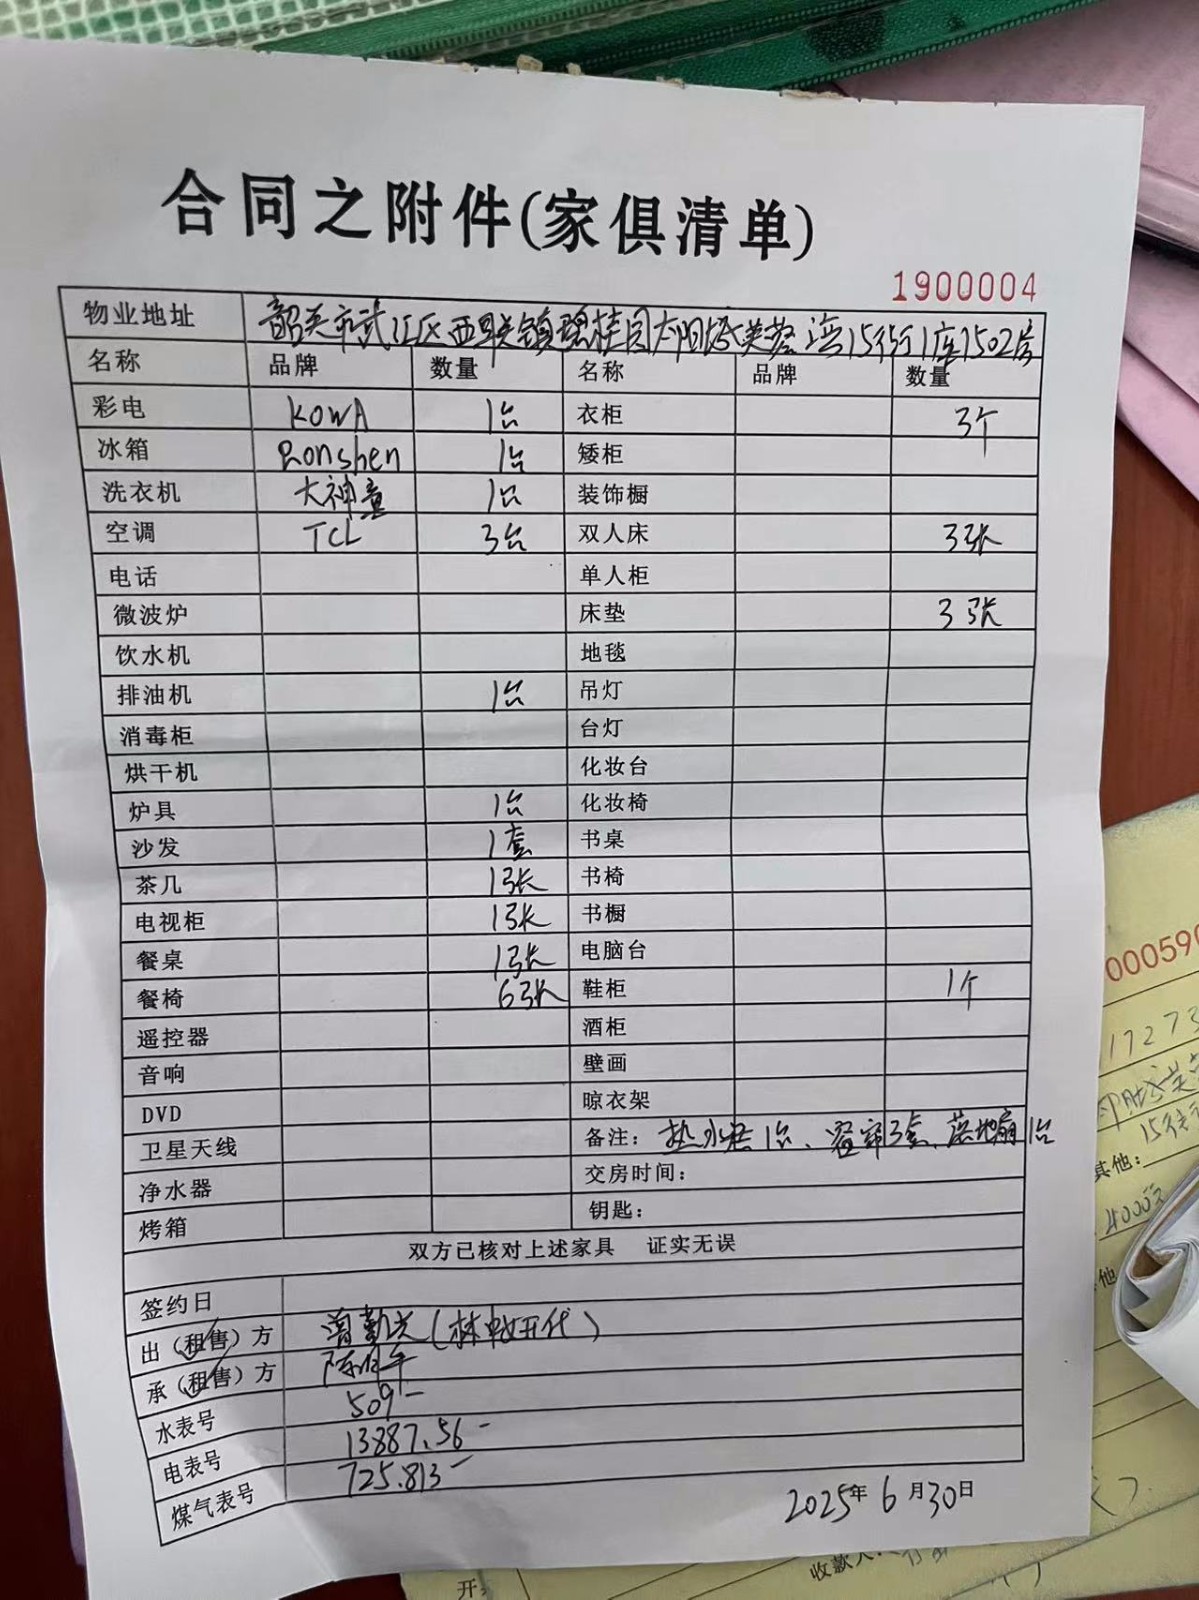 合同之附件(家俱清单)
1900004
物业地址 韶关市武江区西联镇碧桂园太阳城芙蓉湾15街1座1502房
名称 品牌 数量 名称 品牌 数量
彩电 KOWA 1台 衣柜 3个
冰箱 Ronshen 1台 矮柜
洗衣机 大神童 1台 装饰橱
空调 TCL 3台 双人床 3张
电话 单人柜
微波炉 床垫 3张
饮水机 地毯
排油机 1台 吊灯
消毒柜 台灯
烘干机 化妆台
炉具 1台 化妆椅
沙发 1套 书桌
茶几 1张 书椅
电视柜 1张 书橱
餐桌 1张 电脑台
餐椅 6张 鞋柜 1个
遥控器 酒柜
音响 壁画
DVD 晾衣架
卫星天线 备注: 热水器1台、窗帘3套、落地扇1台
净水器 交房时间:
烤箱 钥匙:
双方已核对上述家具 证实无误
签约日
出(租售)方 曾勤光(林 开代)
承(租售)方 陈 平
水表号 509-
电表号 13887.56-
煤气表号 725.813-
2025年6月30日
000590
17273
15街
其他:
4000元
其他
收款人:
开